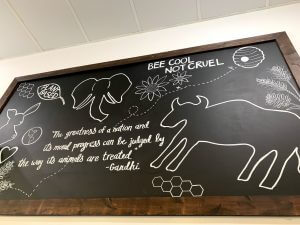 BEE COOL
NOT CRUEL
"The greatness of a nation and
its moral progress can be judged by
the way its animals are treated."
-Gandhi